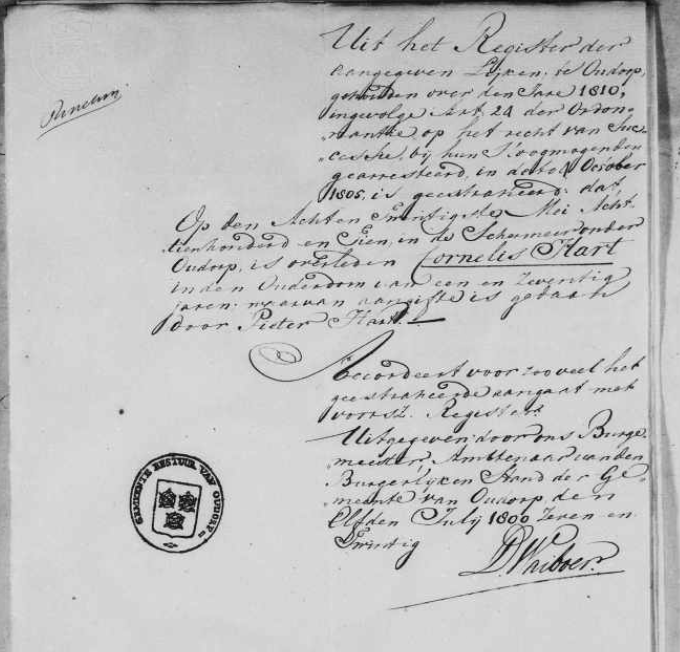 Uit het Register der
aangegeven Lijken, te Oudorp,
gehouden over den Jare 1810,
ingevolge Art. 24 der Ordon„
„nantie, op het recht van Suc„
„cessie, bij hun Hoogmogenden
gearresteerd, in dato 4 October
1805, is geextraheerd: dat,
Op den Achten Twintigste Mei Acht„
tienhonderd en Tien, in de Schermeer onder
Oudorp, is overleden Cornelis Hart
in den Ouderdom van een en Zeventig
jaren; waarvan aangifte is gedaan
door Pieter Hart.
Accordeert voor zoo veel het
geextraheerde aangaat met
voorsz. Register.
Uitgegeven door ons Burge„
meester, Ambtenaar van den
Burgerlijken Stand der Ge„
meente van Oudorp den
Elfden Julij 1800 Zeven en
Twintig
GEMEENTE BESTUUR VAN OUDORP